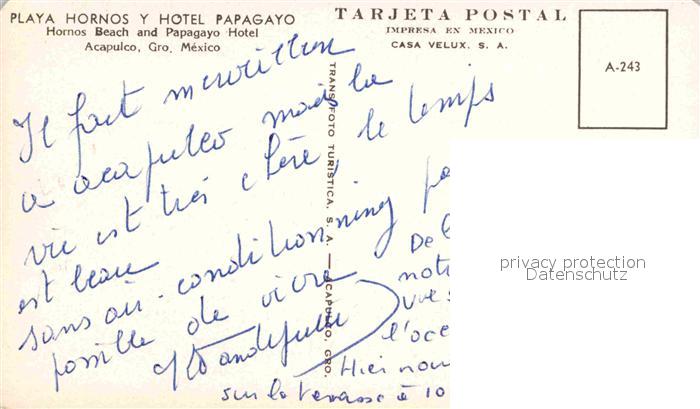 PLAYA HORNOS Y HOTEL PAPAGAYO
Hornos Beach and Papagayo Hotel
Acapulco, Gro. México
TARJETA POSTAL
IMPRESA EN MEXICO
CASA VELUX. S. A.
A-243
TRANS FOTO TURISTICA, S. A. — ACAPULCO, GRO.
Il fait merveilleux
a acapulco mais la
vie est très chère, le temps
est beau
sans air-conditionning
possible de vivre
De
notr
vue s
l'océ
Hier nou
sur la terrasse à 10
privacy protection
Datenschutz